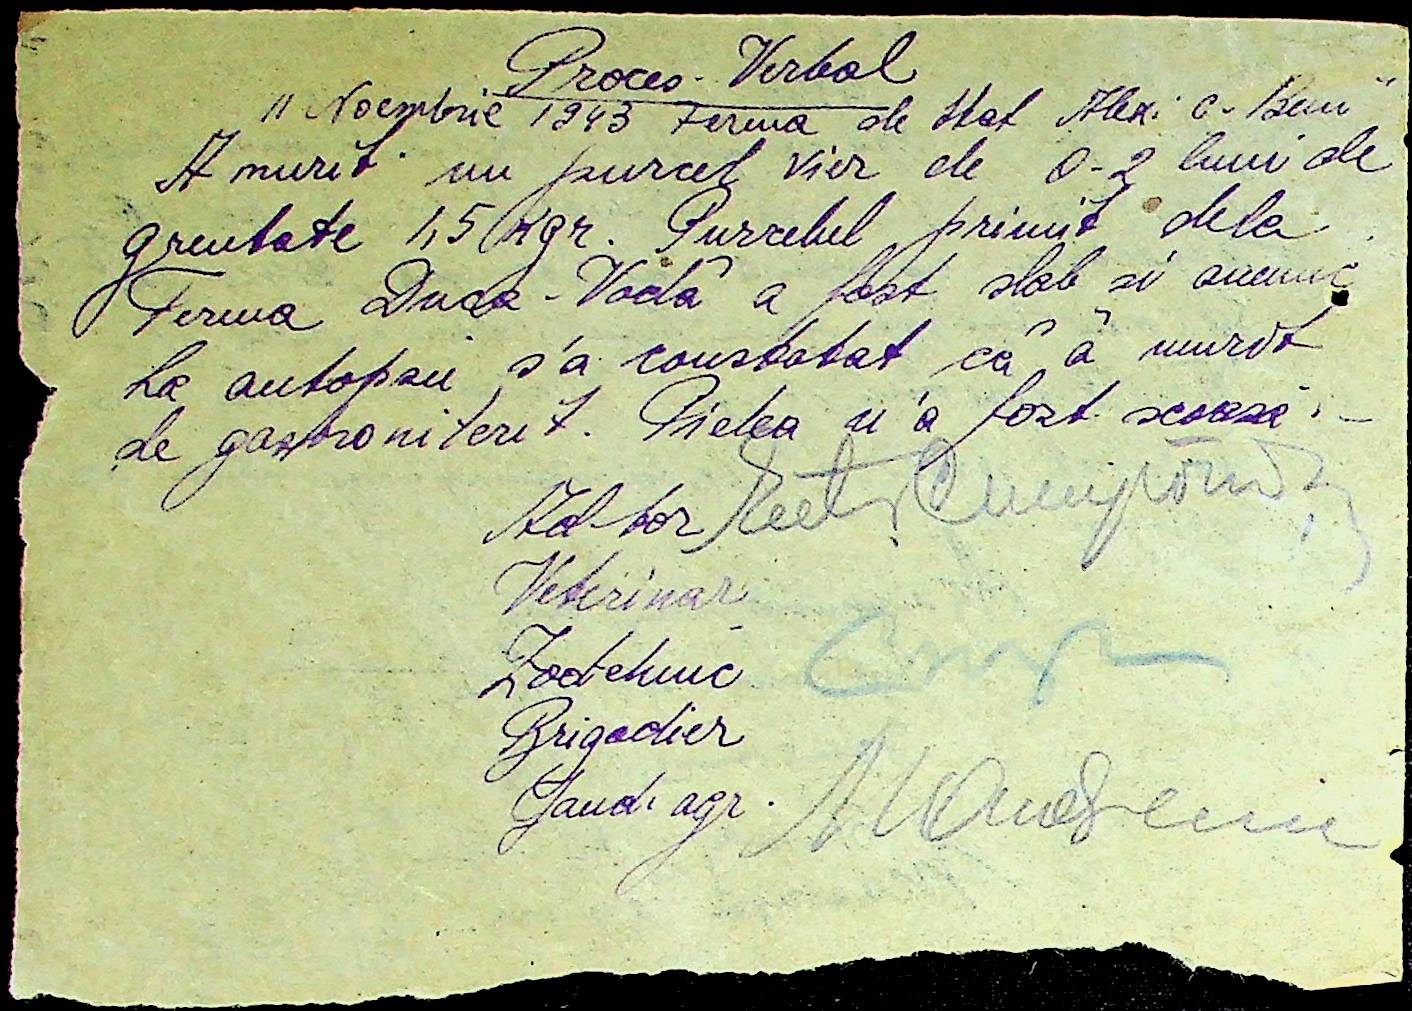 Proces-Verbal
11 Noembrie 1943 Ferma de Stat Alex. c-
A murit un purcel vier de 0-2 luni de
greutate 1,5 kgr. Purcelul primit dela
Ferma Duca-Vodă a fost slab si anemic
La autopsii s'a constatat că a murit
de gastroniterit. Pielea n'a fost scoasă. -
Ad-tor
Veterinar
Zootehnic
Brigadier
Jand. agr.